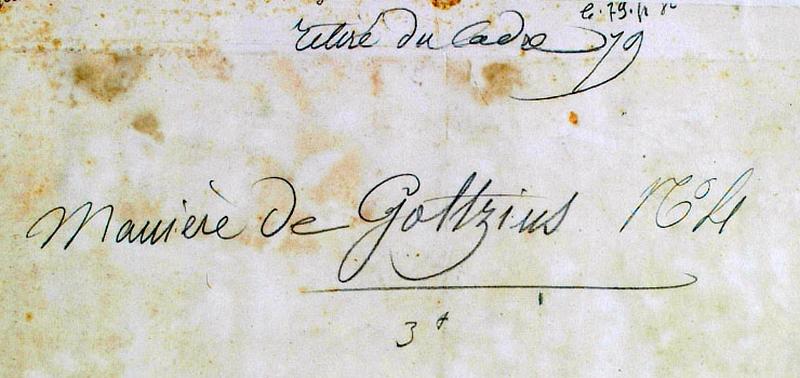 retiré du Cadre 79
Manière de Goltzius N° 4
3